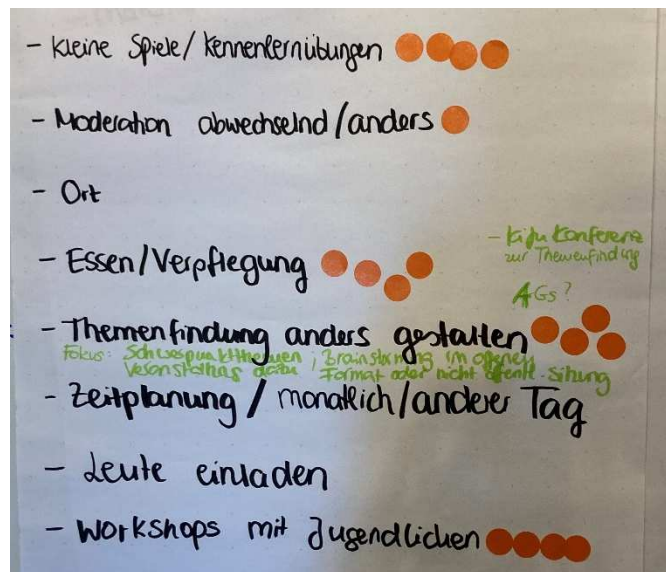 - Kleine Spiele/Kennenlernübungen
- Moderation abwechselnd/anders
- Ort
- Essen/Verpflegung
- KiJu Konferenz
zur Themenfindung
AGs?
- Themenfindung anders gestalten
Fokus: Schwerpunktthemen; Brainstorming im offenen
Veranstaltung dazu Format oder nicht öffentl. Sitzung
- Zeitplanung / monatlich/anderer Tag
- Leute einladen
- Workshops mit Jugendlichen